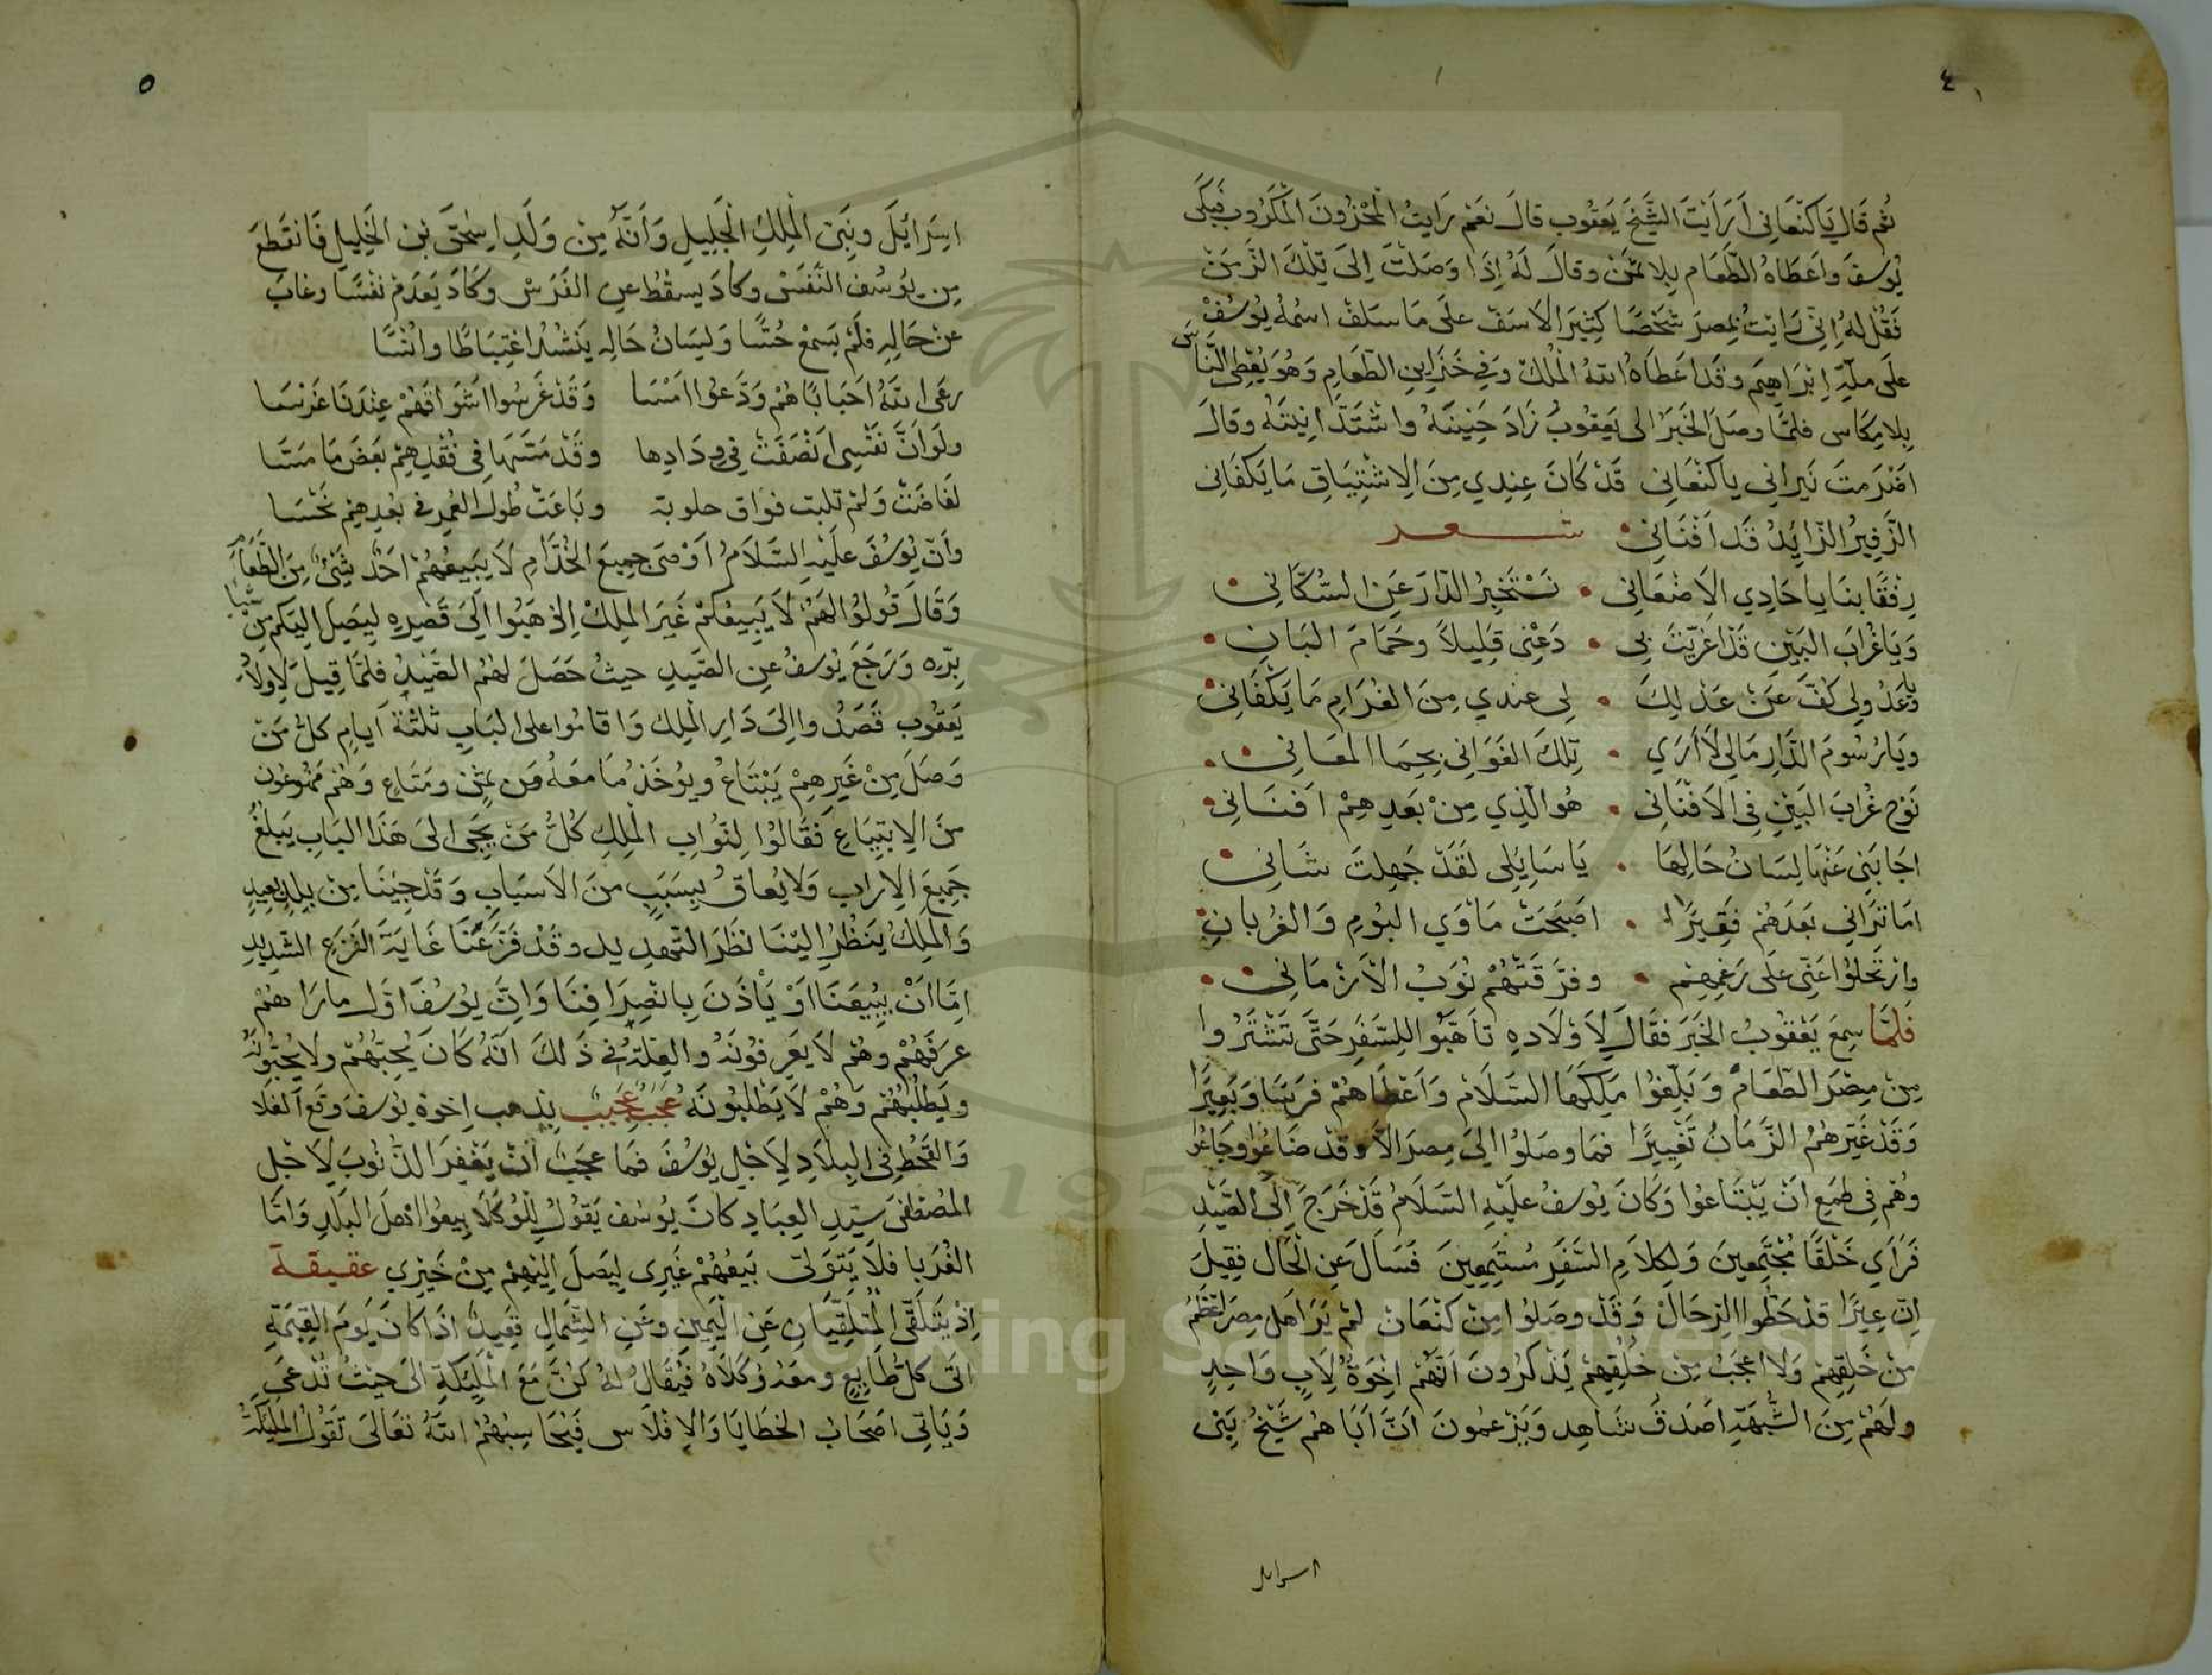 ٤
ثم قال يا كنعاني أرأيت الشيخ يعقوب قال نعم رايت المحزون المكروب فبكى
يوسف واعطاه الطعام بلا ثمن وقال له إذا وصلت إلى تلك الزمن
فقل له إني رايت بمصر شخصا كثير الاسف على ما سلف اسمه يوسف
على ملة إبراهيم وقد اعطاه الله الملك وفي خزاين الطعام وهو يعطي الناس
بلا مكاس فلما وصل الخبر الى يعقوب زاد حنينه واشتد انينه وقال
اضرمت نيراني يا كنعاني قد كان عندي من الاشتياق ما يكفاني
الزفير الزايد قد افناني شعر
رفقا بنا يا حادي الاضعاني • نستخبر الدار عن السكاني
ويا غراب البين قد اغريت بي • دعني قليلا وحمام البان
ويا عذولي كف عن عذلك • لي عندي من الغرام ما يكفاني
ويا رسوم الدار مالي لا أرى • تلك الغواني بحما المغاني
نوح غراب البين في الافناني • هو الذي من بعدهم افناني
اجابني عنها لسان حالها • يا سايلي لقد جهلت شاني
اما تراني بعدهم فقيرا • اصبحت ماوي البوم والغربان
وارتحلوا عني على رغمهم • وفرقتهم نوب الازماني
فلما سمع يعقوب الخبر فقال لاولاده تاهبوا للسفر حتى تشتروا
من مصر الطعام وبلغوا ملكها السلام واعطاهم فرسا وبعيرا
وقد غيرهم الزمان تغييرا فما وصلوا الى مصر الا وقد ضاعوا وجاعوا
وهم في طمع ان يبتاعوا وكان يوسف عليه السلام قد خرج إلى الصيد
فراي خلقا مجتمعين ولكلام السفر مستمعين فسال عن الحال فقيل
ان عيرا قد حطوا الرحال وقد وصلوا من كنعان لم ير اهل مصر اعظم
من خلقهم ولا اعجب من خلقهم يذكرون انهم اخوة لاب واحد
ولهم من الشبهة اصدق شاهد ويزعمون ان اباهم شيخ بني
اسرايل
٥
اسرائل ونبي الملك الجليل وأنه من ولد اسحق بن الخليل فانقطع
من يوسف النفس وكاد يسقط عن الفرس وكاد يعدم نفسا وغاب
عن حاله فلم يسمع حسا ولسان حاله ينشد اغتباطا وانسا
رعى الله احبابا هم ودعوا امسا وقد غرسوا اشواقهم عندنا غرسا
ولو ان نفسي انصفت في ودادها وقد مسها في فقدهم بعض ما مسا
لفاضت ولم تلبت فواق حلوبة وباعت طول العمر في بعدهم بخسا
وان يوسف عليه السلام اوصى جميع الخدام لا يبيعهم احد شئ من الطعام
وقال قولوا لهم لا يبيعكم غير الملك اذهبوا الى قصره ليصل اليكم من
بره ورجع يوسف عن الصيد حيث حصل لهم الصيد فلما قيل لاولاد
يعقوب قصدوا الى دار الملك واقاموا على الباب ثلثة ايام كل من
وصل من غيرهم يبتاع ويوخذ ما معه من ثمن ومتاع وهم ممنوعون
من الابتياع فقالوا لنواب الملك كل من يجي الى هذا الباب يبلغ
جميع الاراب ولا يعاق بسبب من الاسباب وقد جينا من بلد بعيد
والملك ينظر الينا نظر التهديد وقد فزعنا غاية الفزع الشديد
اما ان يبيعنا او ياذن بانصرافنا وان يوسف اول ما راهم
عرفهم وهم لا يعرفونه والعلة في ذلك انه كان يحبهم ولا يحبونه
ويطلبهم وهم لا يطلبونه عجب عجيب بذهب اخوة يوسف وقع الغلا
والقحط في البلاد لاجل يوسف فما عجب ان يغفر الذنوب لاجل
المصطفى سيد العباد كان يوسف يقول للوكلا بيعوا اهل البلد واما
الغربا فلا يتولى بيعهم غيري ليصل اليهم من خيري عقيقة
إذ يتلقى المتلقيان عن اليمين وعن الشمال قعيد اذا كان يوم القيمة
اتى كل طايع ومعه وكلاه فيقال له كن مع المليكة الى حيث تدعى
وياتي اصحاب الخطايا والافلاس فيحاسبهم الله تعالى تقول المليكة